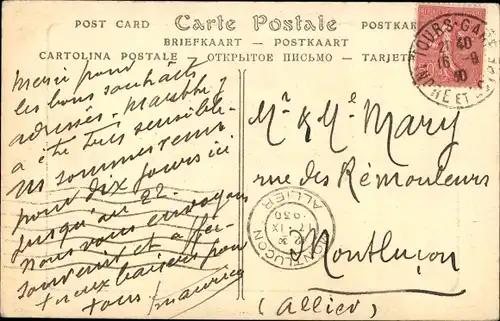 POST CARD Carte Postale POSTKAR
BRIEFKAART - POSTKAART
CARTOLINA POSTALE - ОТКРЫТОЕ ПИСЬМО - TARJET
Merci pour
les bons souhaits
adressés,
a été très sensible
ns sommes
pour dix jours ici
jusqu'au 22.
nous vous envoyons
souvenir et affec-
tueux baisers pour
tous Maurice
TOURS-GARE
40
16 - 9
30
INDRE ET LOIRE
Mr & Me Mary
rue des Rémouleurs
Montluçon
(Allier)
MONTLUÇON
17 IX
1930
ALLIER